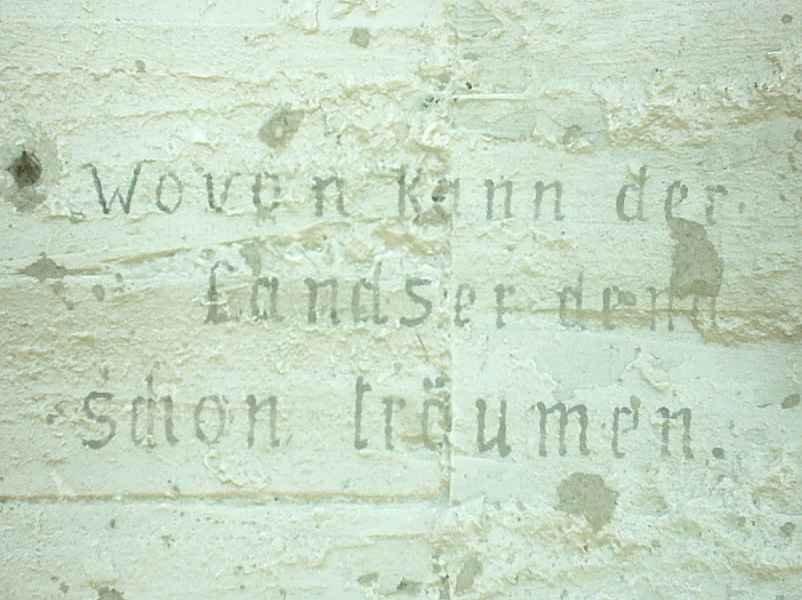 Wovon kann der
Landser denn
schon träumen.